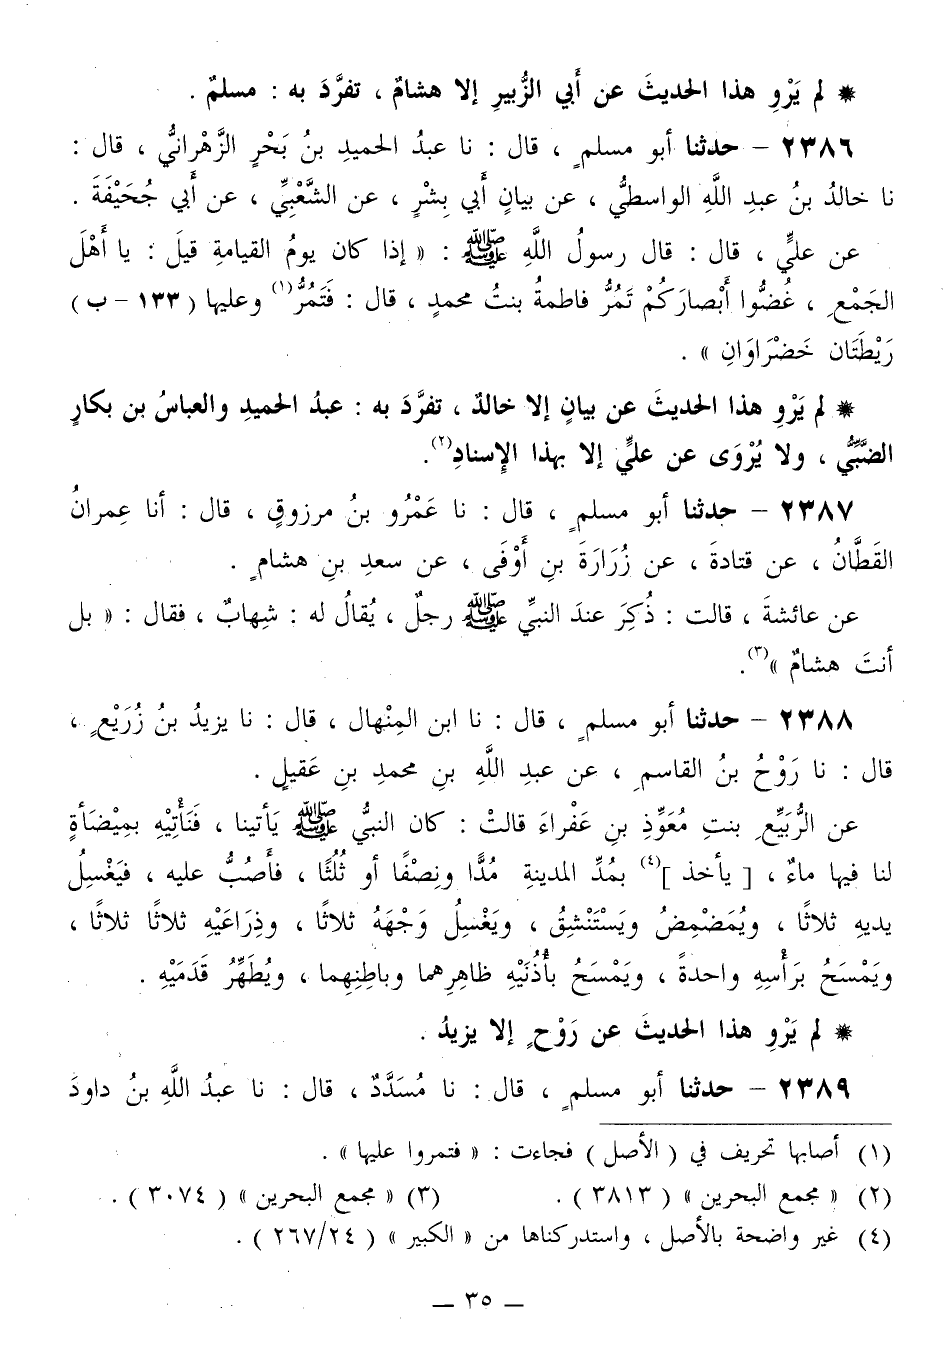 * لم يَرْوِ هذا الحديثَ عن أَبي الزُّبيرِ إلا هشامٌ ، تفرَّدَ به : مسلمٌ .
٢٣٨٦ – حدثنا أبو مسلمٍ ، قال : نا عبدُ الحميدِ بنُ بَحْرٍ الزَّهْرانيُّ ، قال :
نا خالدُ بنُ عبدِ اللَّهِ الواسطيُّ ، عن بيانٍ أَبي بِشْرٍ ، عن الشَّعْبِيِّ ، عن أَبي جُحَيْفَةَ .
عن عليٍّ ، قال : قال رسولُ اللَّهِ ﷺ : « إذا كان يومُ القيامةِ قيلَ : يا أَهْلَ
الجَمْعِ ، غُضُّوا أَبْصارَكُمْ تَمُرُّ فاطمةُ بنتُ محمدٍ ، قال : فَتَمُرُّ(١) وعليها ( ١٣٣ – ب )
رَيْطَتَان خَضْرَاوَانِ » .
* لم يَرْوِ هذا الحديثَ عن بيانٍ إلا خالدٌ ، تفرَّدَ به : عبدُ الحميدِ والعباسُ بن بكارٍ
الضَّبِّيُّ ، ولا يُرْوَى عن عليٍّ إلا بهذا الإِسنادِ(٢).
٢٣٨٧ – حدثنا أبو مسلمٍ ، قال : نا عَمْرُو بنُ مرزوقٍ ، قال : أنا عِمرانُ
القَطَّانُ ، عن قتادةَ ، عن زُرَارَةَ بنِ أَوْفَى ، عن سعدِ بنِ هشامٍ .
عن عائشةَ ، قالت : ذُكِرَ عندَ النبيِّ ﷺ رجلٌ ، يُقالُ له : شِهابٌ ، فقال : « بل
أنتَ هشامٌ »(٣).
٢٣٨٨ – حدثنا أبو مسلمٍ ، قال : نا ابن المِنْهال ، قال : نا يزيدُ بنُ زُرَيْعٍ ،
قال : نا رَوْحُ بنُ القاسمِ ، عن عبدِ اللَّهِ بنِ محمدِ بنِ عَقيلٍ .
عن الرُّبَيِّعِ بنتِ مُعَوِّذِ بنِ عَفْراءَ قالتْ : كان النبيُّ ﷺ يَأتينا ، فَنَأْتِيْهِ بمِيْضَأَةٍ
لنا فيها ماءٌ ، [ يأخذ ](٤) بمُدِّ المدينةِ مُدًّا ونِصْفًا أو ثُلُثًا ، فأَصُبُّ عليه ، فيَغْسِلُ
يديهِ ثلاثًا ، ويُمَضْمِضُ ويَسْتَنْشِقُ ، ويَغْسِلُ وَجْهَهُ ثلاثًا ، وذِرَاعَيْهِ ثلاثًا ثلاثًا ،
ويَمْسَحُ بَرَأْسِهِ واحدةً ، ويَمْسَحُ بأُذُنَيْهِ ظاهرِهما وباطِنِهما ، ويُطَهِّرُ قَدَمَيْهِ .
* لم يَرْوِ هذا الحديثَ عن رَوْحٍ إلا يزيدُ .
٢٣٨٩ – حدثنا أبو مسلمٍ ، قال : نا مُسَدَّدٌ ، قال : نا عبدُ اللَّهِ بنُ داودَ
(١) أصابها تحريف في ( الأصل ) فجاءت : « فتمروا عليها » .
(٢) « مجمع البحرين » ( ٣٨١٣ ) . (٣) « مجمع البحرين » ( ٣٠٧٤ ) .
(٤) غير واضحة بالأصل ، واستدركناها من « الكبير » ( ٢٦٧/٢٤ ) .
– ٣٥ –